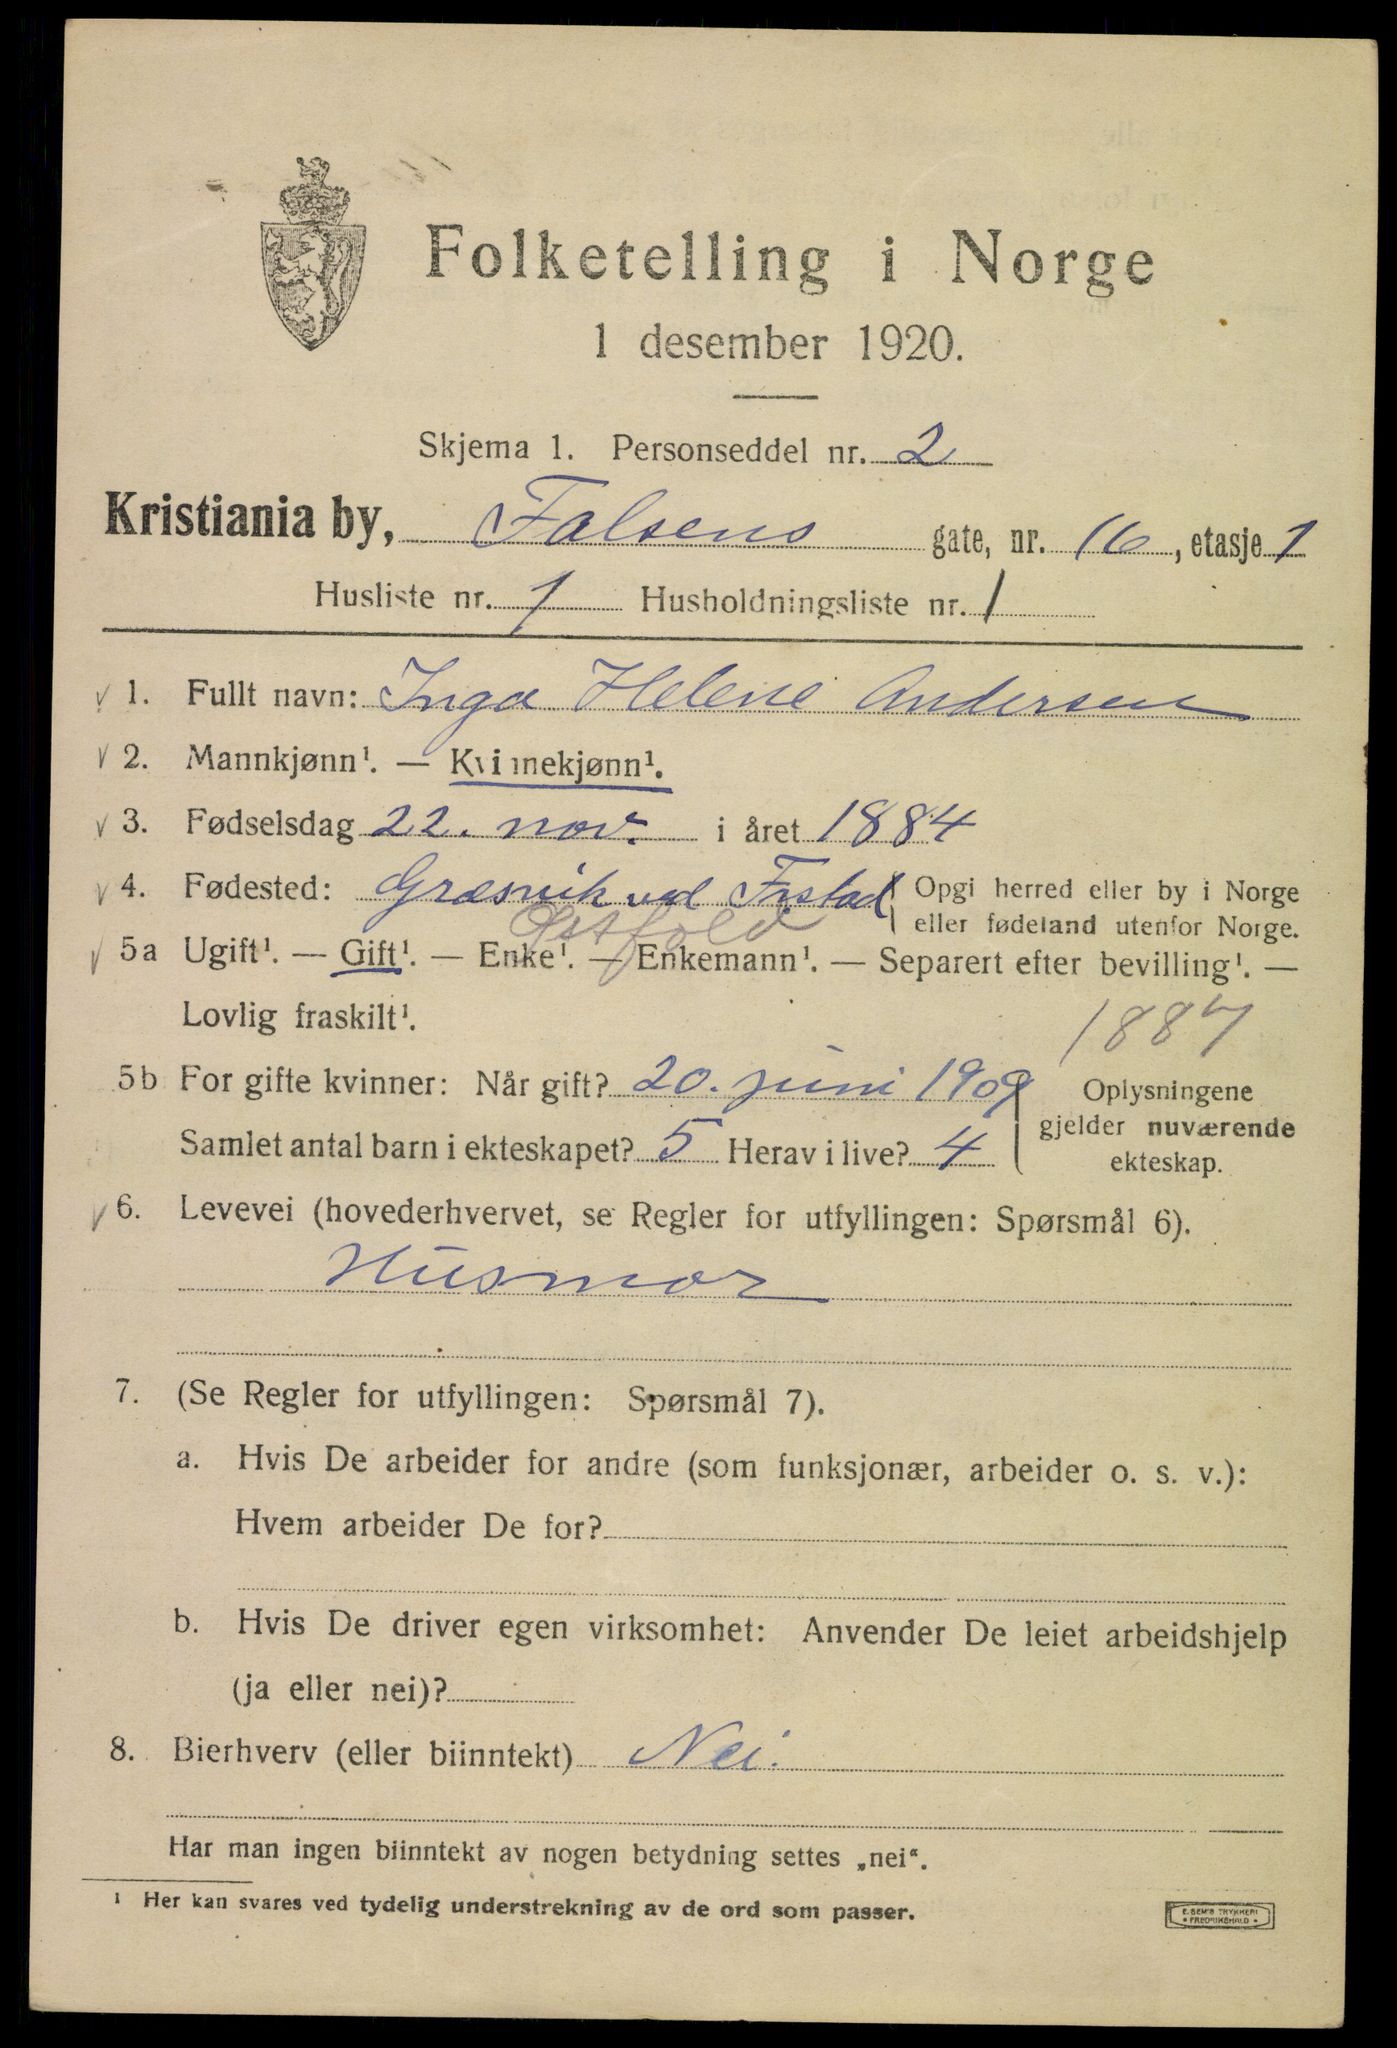 Folketelling i Norge
1 desember 1920.
Skjema 1. Personseddel nr. 2
Kristiania by, Falsens gate, nr. 16, etasje 1
Husliste nr. 1 Husholdningsliste nr. 1
√ 1. Fullt navn: Inga Helene Andersen
√ 2. Mannkjønn¹. — Kvinnekjønn¹.
√ 3. Fødselsdag 22. nov. i året 1884
√ 4. Fødested: Græsvik ved Frstad Opgi herred eller by i Norge
eller fødeland utenfor Norge.
Østfold
√ 5a Ugift¹. — Gift¹. — Enke¹. — Enkemann¹. — Separert efter bevilling¹. —
Lovlig fraskilt¹.
1887
5b For gifte kvinner: Når gift? 20. juni 1909 Oplysningene
gjelder nuværende
ekteskap.
Samlet antal barn i ekteskapet? 5 Herav i live? 4
√ 6. Levevei (hovederhvervet, se Regler for utfyllingen: Spørsmål 6).
Husmor
7. (Se Regler for utfyllingen: Spørsmål 7).
a. Hvis De arbeider for andre (som funksjonær, arbeider o. s. v.):
Hvem arbeider De for?
b. Hvis De driver egen virksomhet: Anvender De leiet arbeidshjelp
(ja eller nei)?
8. Bierhverv (eller biinntekt) Nei.
Har man ingen biinntekt av nogen betydning settes „nei“.
¹ Her kan svares ved tydelig understrekning av de ord som passer.
E. SEM'S TRYKKERI
• FREDRIKSHALD •